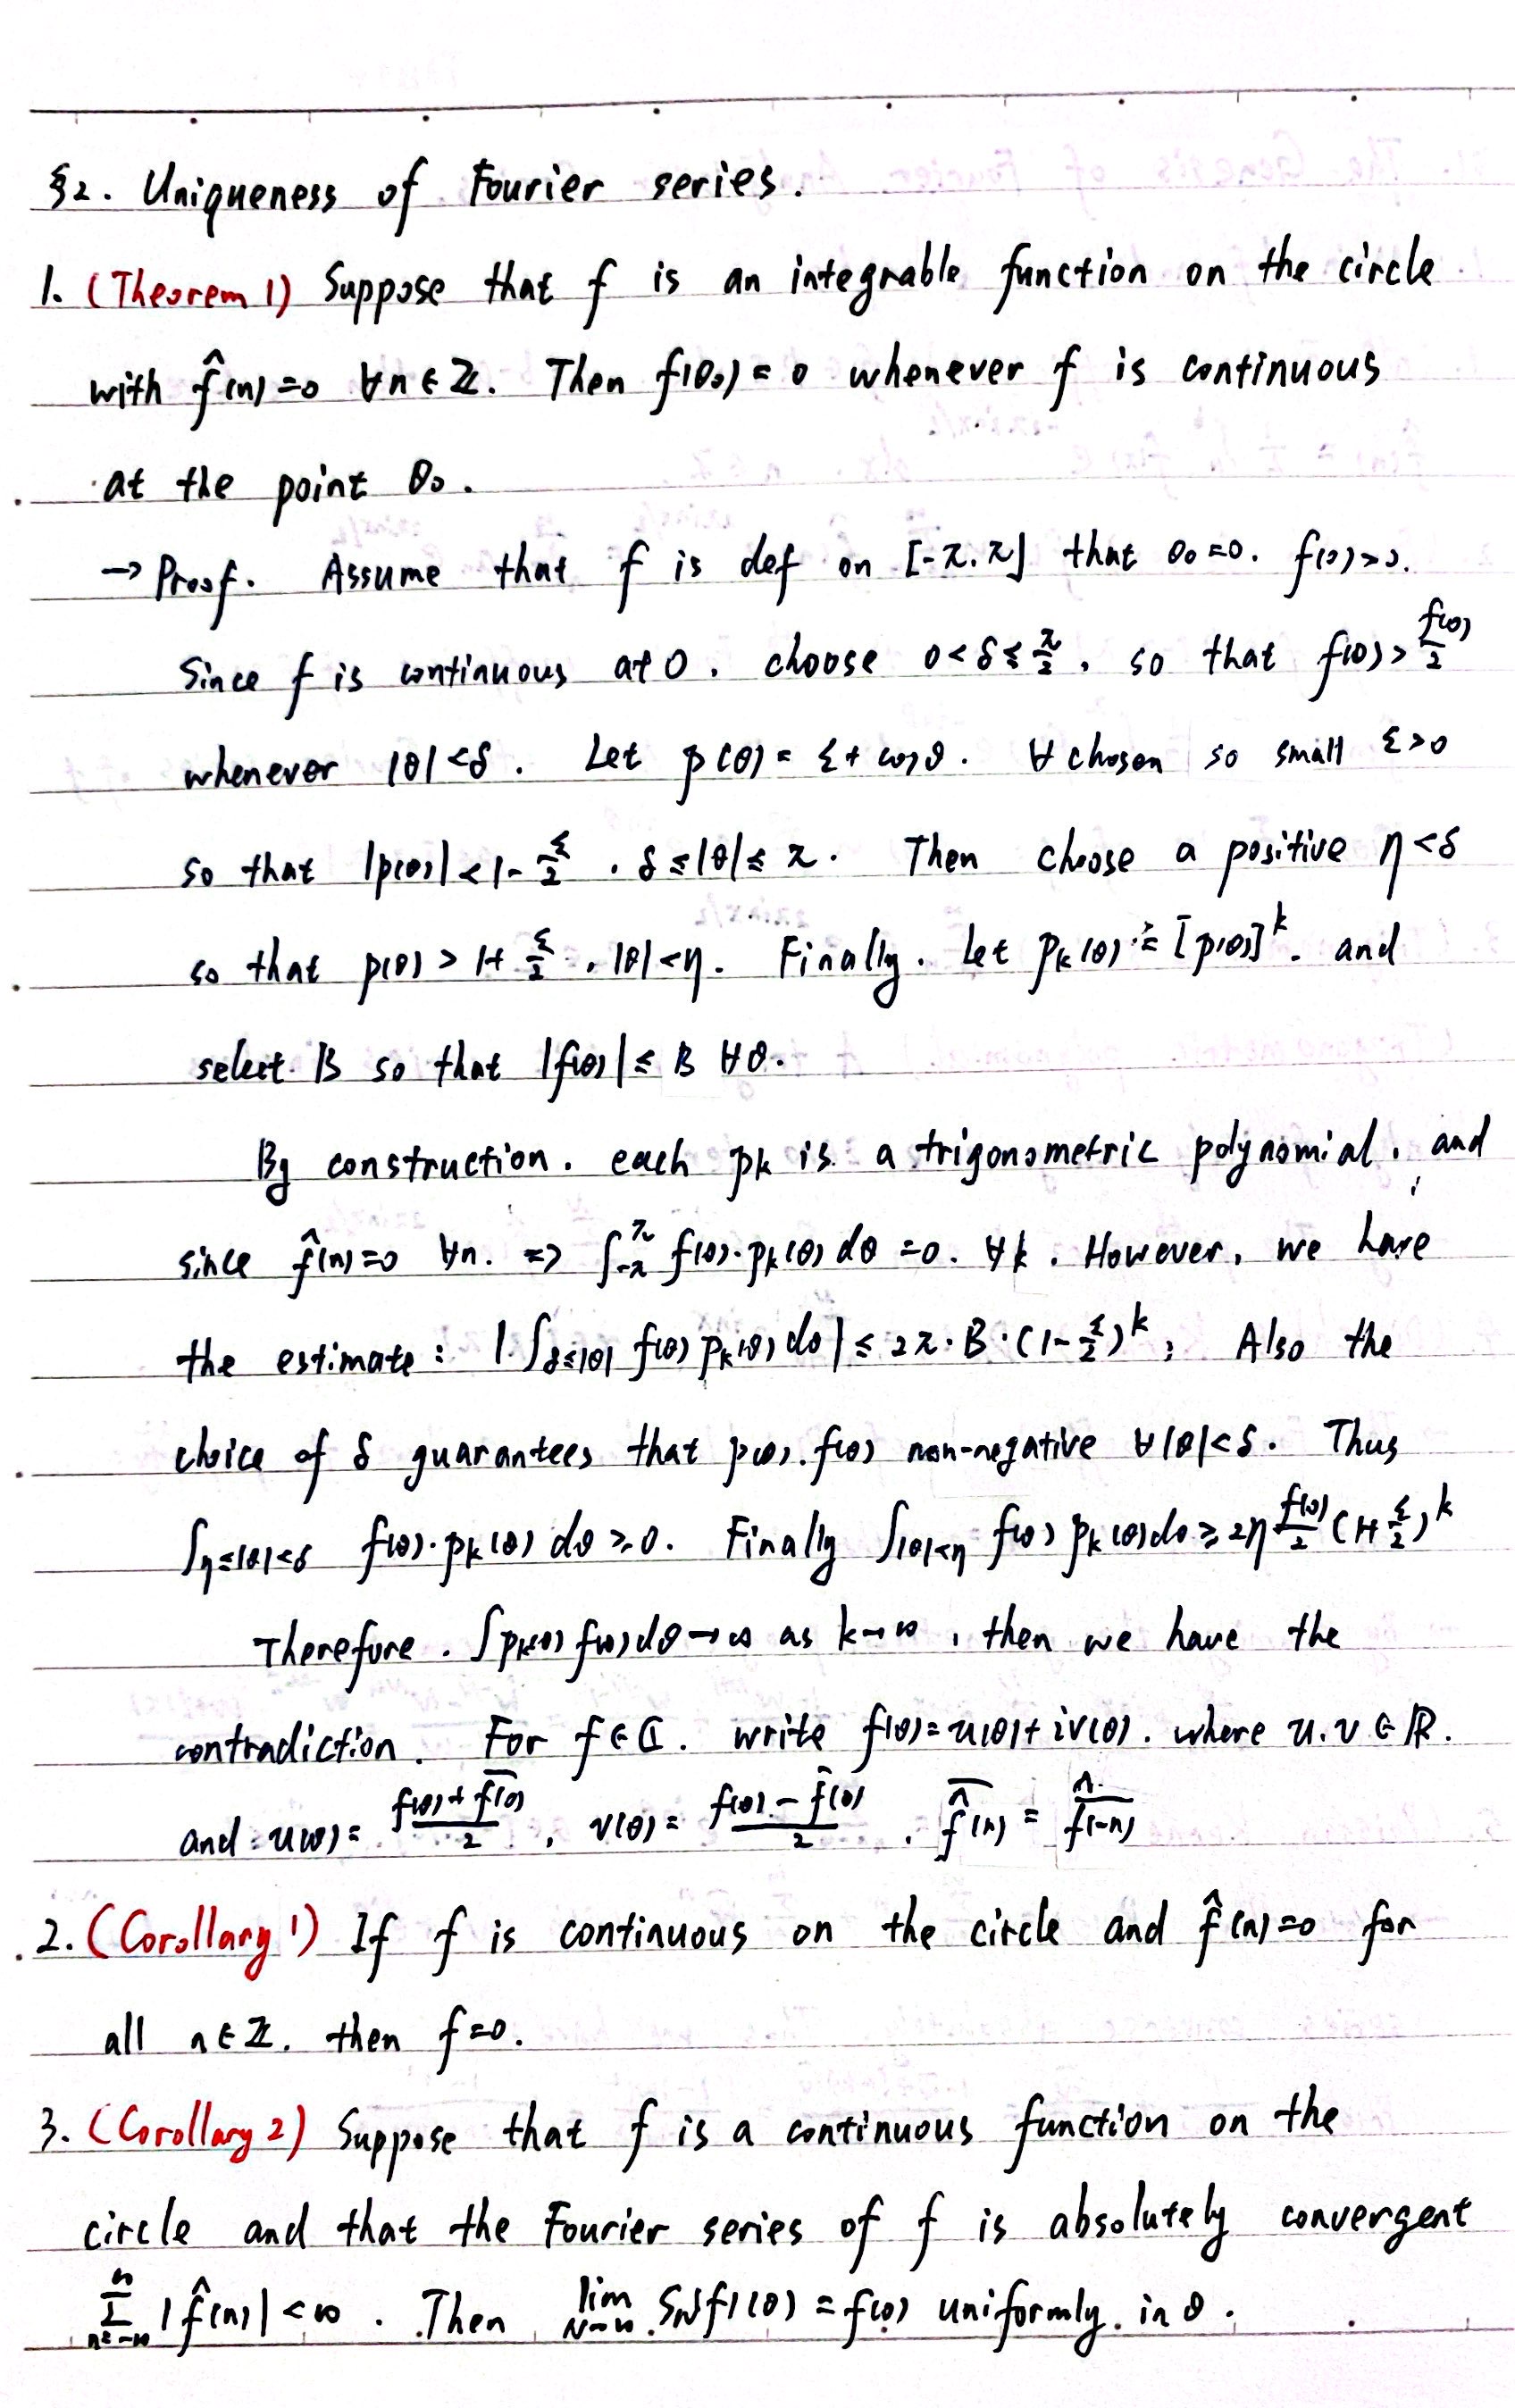 §2. Uniqueness of Fourier series.
1. (Theorem 1) Suppose that f is an integrable function on the circle
with f̂(n)=0 ∀n∈ℤ. Then f(θ₀)=0 whenever f is continuous
at the point θ₀.
→ Proof. Assume that f is def on [-π,π] that θ₀=0. f(0)>0.
Since f is continuous at 0, choose 0<δ≤π/2, so that f(θ)>f(0)/2
whenever |θ|<δ. Let p(θ)=ε+cosθ. ∀ chosen so small ε>0
so that |p(θ)|<1-ε/2, δ≤|θ|≤π. Then choose a positive η<δ
so that p(θ)>1+ε/2, |θ|<η. Finally. Let pₖ(θ)≐[p(θ)]ᵏ. and
select B so that |f(θ)|≤B ∀θ.
By construction, each pk is a trigonometric polynomial, and
since f̂(n)=0 ∀n. => ∫_{-π}^{π} f(θ)·pₖ(θ)dθ=0. ∀k. However, we have
the estimate: |∫_{δ≤|θ|} f(θ)pₖ(θ)dθ|≤2π·B·(1-ε/2)ᵏ; Also the
choice of δ guarantees that p(θ).f(θ) non-negative ∀|θ|<δ. Thus
∫_{η≤|θ|<δ} f(θ)·pₖ(θ)dθ≥0. Finally ∫_{|θ|<η} f(θ)pₖ(θ)dθ≥2η f(0)/2 (1+ε/2)ᵏ
Therefore. ∫pₖ(θ)f(θ)dθ→∞ as k→∞, then we have the
contradiction. For f∈ℂ. write f(θ)=u(θ)+iv(θ). where u.v∈ℝ.
and u(θ)=(f(θ)+\overline{f(θ)})/2, v(θ)=(f(θ)-\bar{f}(θ))/2, \hat{\overline{f}}(n)=\overline{\hat{f}(-n)}
2. (Corollary 1) If f is continuous on the circle and f̂(n)=0 for
all n∈ℤ, then f=0.
3. (Corollary 2) Suppose that f is a continuous function on the
circle and that the Fourier series of f is absolutely convergent
∑_{n=-∞}^{∞} |f̂(n)|<∞. Then lim_{N→∞} S_N(f)(θ)=f(θ) uniformly in θ.